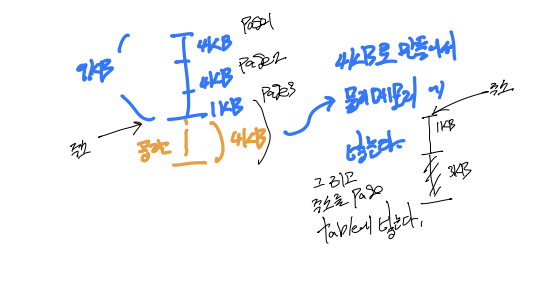 9KB
4KB
Page1
4KB
Page2
1KB
Page3
주소
공간
4KB
4KB로 만들어서
물리메모리에
넣는다.
주소
1KB
3KB
그리고
주소를 Page
table에 넣는다.